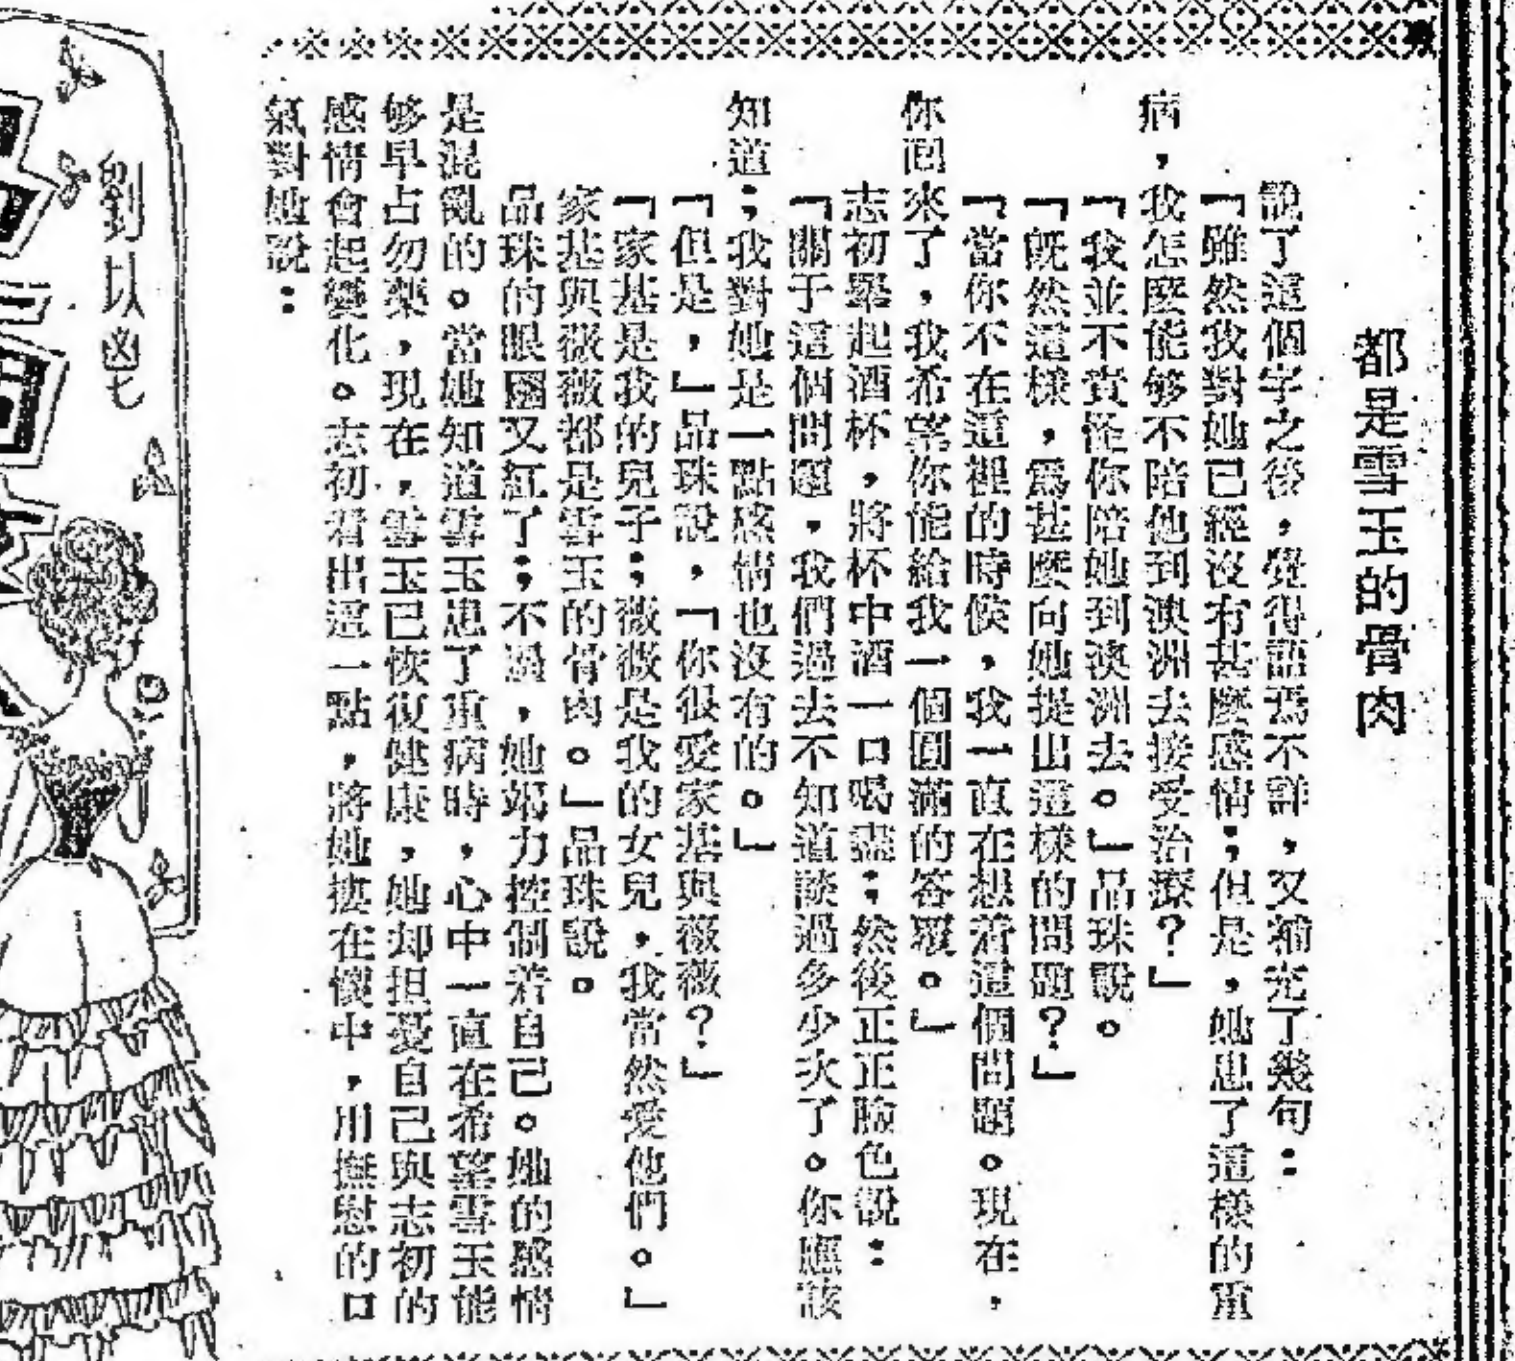 都是雪玉的骨肉
說了這個字之後，覺得語焉不詳，又補充了幾句：
「雖然我對她已經沒有甚麼感情；但是，她患了這樣的重
病，我怎麼能够不陪他到澳洲去接受治療？」
「我並不責怪你陪她到澳洲去。」品珠說。
「旣然這樣，爲甚麼向她提出這樣的問題？」
「當你不在這裡的時候，我一直在想着這個問題。現在，
你回來了，我希望你能給我一個圓滿的答覆。」
志初舉起酒杯，將杯中酒一口喝盡；然後正正臉色說：
「關于這個問題，我們過去不知道談過多少次了。你應該
知道；我對她是一點感情也沒有的。」
「但是，」品珠說，「你很愛家基與薇薇？」
「家基是我的兒子；薇薇是我的女兒，我當然愛他們。」
家基與薇薇都是雪玉的骨肉。」品珠說。
品珠的眼圈又紅了；不過，她竭力控制着自己。她的感情
是混亂的。當她知道雪玉患了重病時，心中一直在希望雪玉能
够早占勿藥，現在，雪玉已恢復健康，她却担憂自己與志初的
感情會起變化。志初看出這一點，將她摟在懷中，用撫慰的口
氣對她說：
劉以鬯